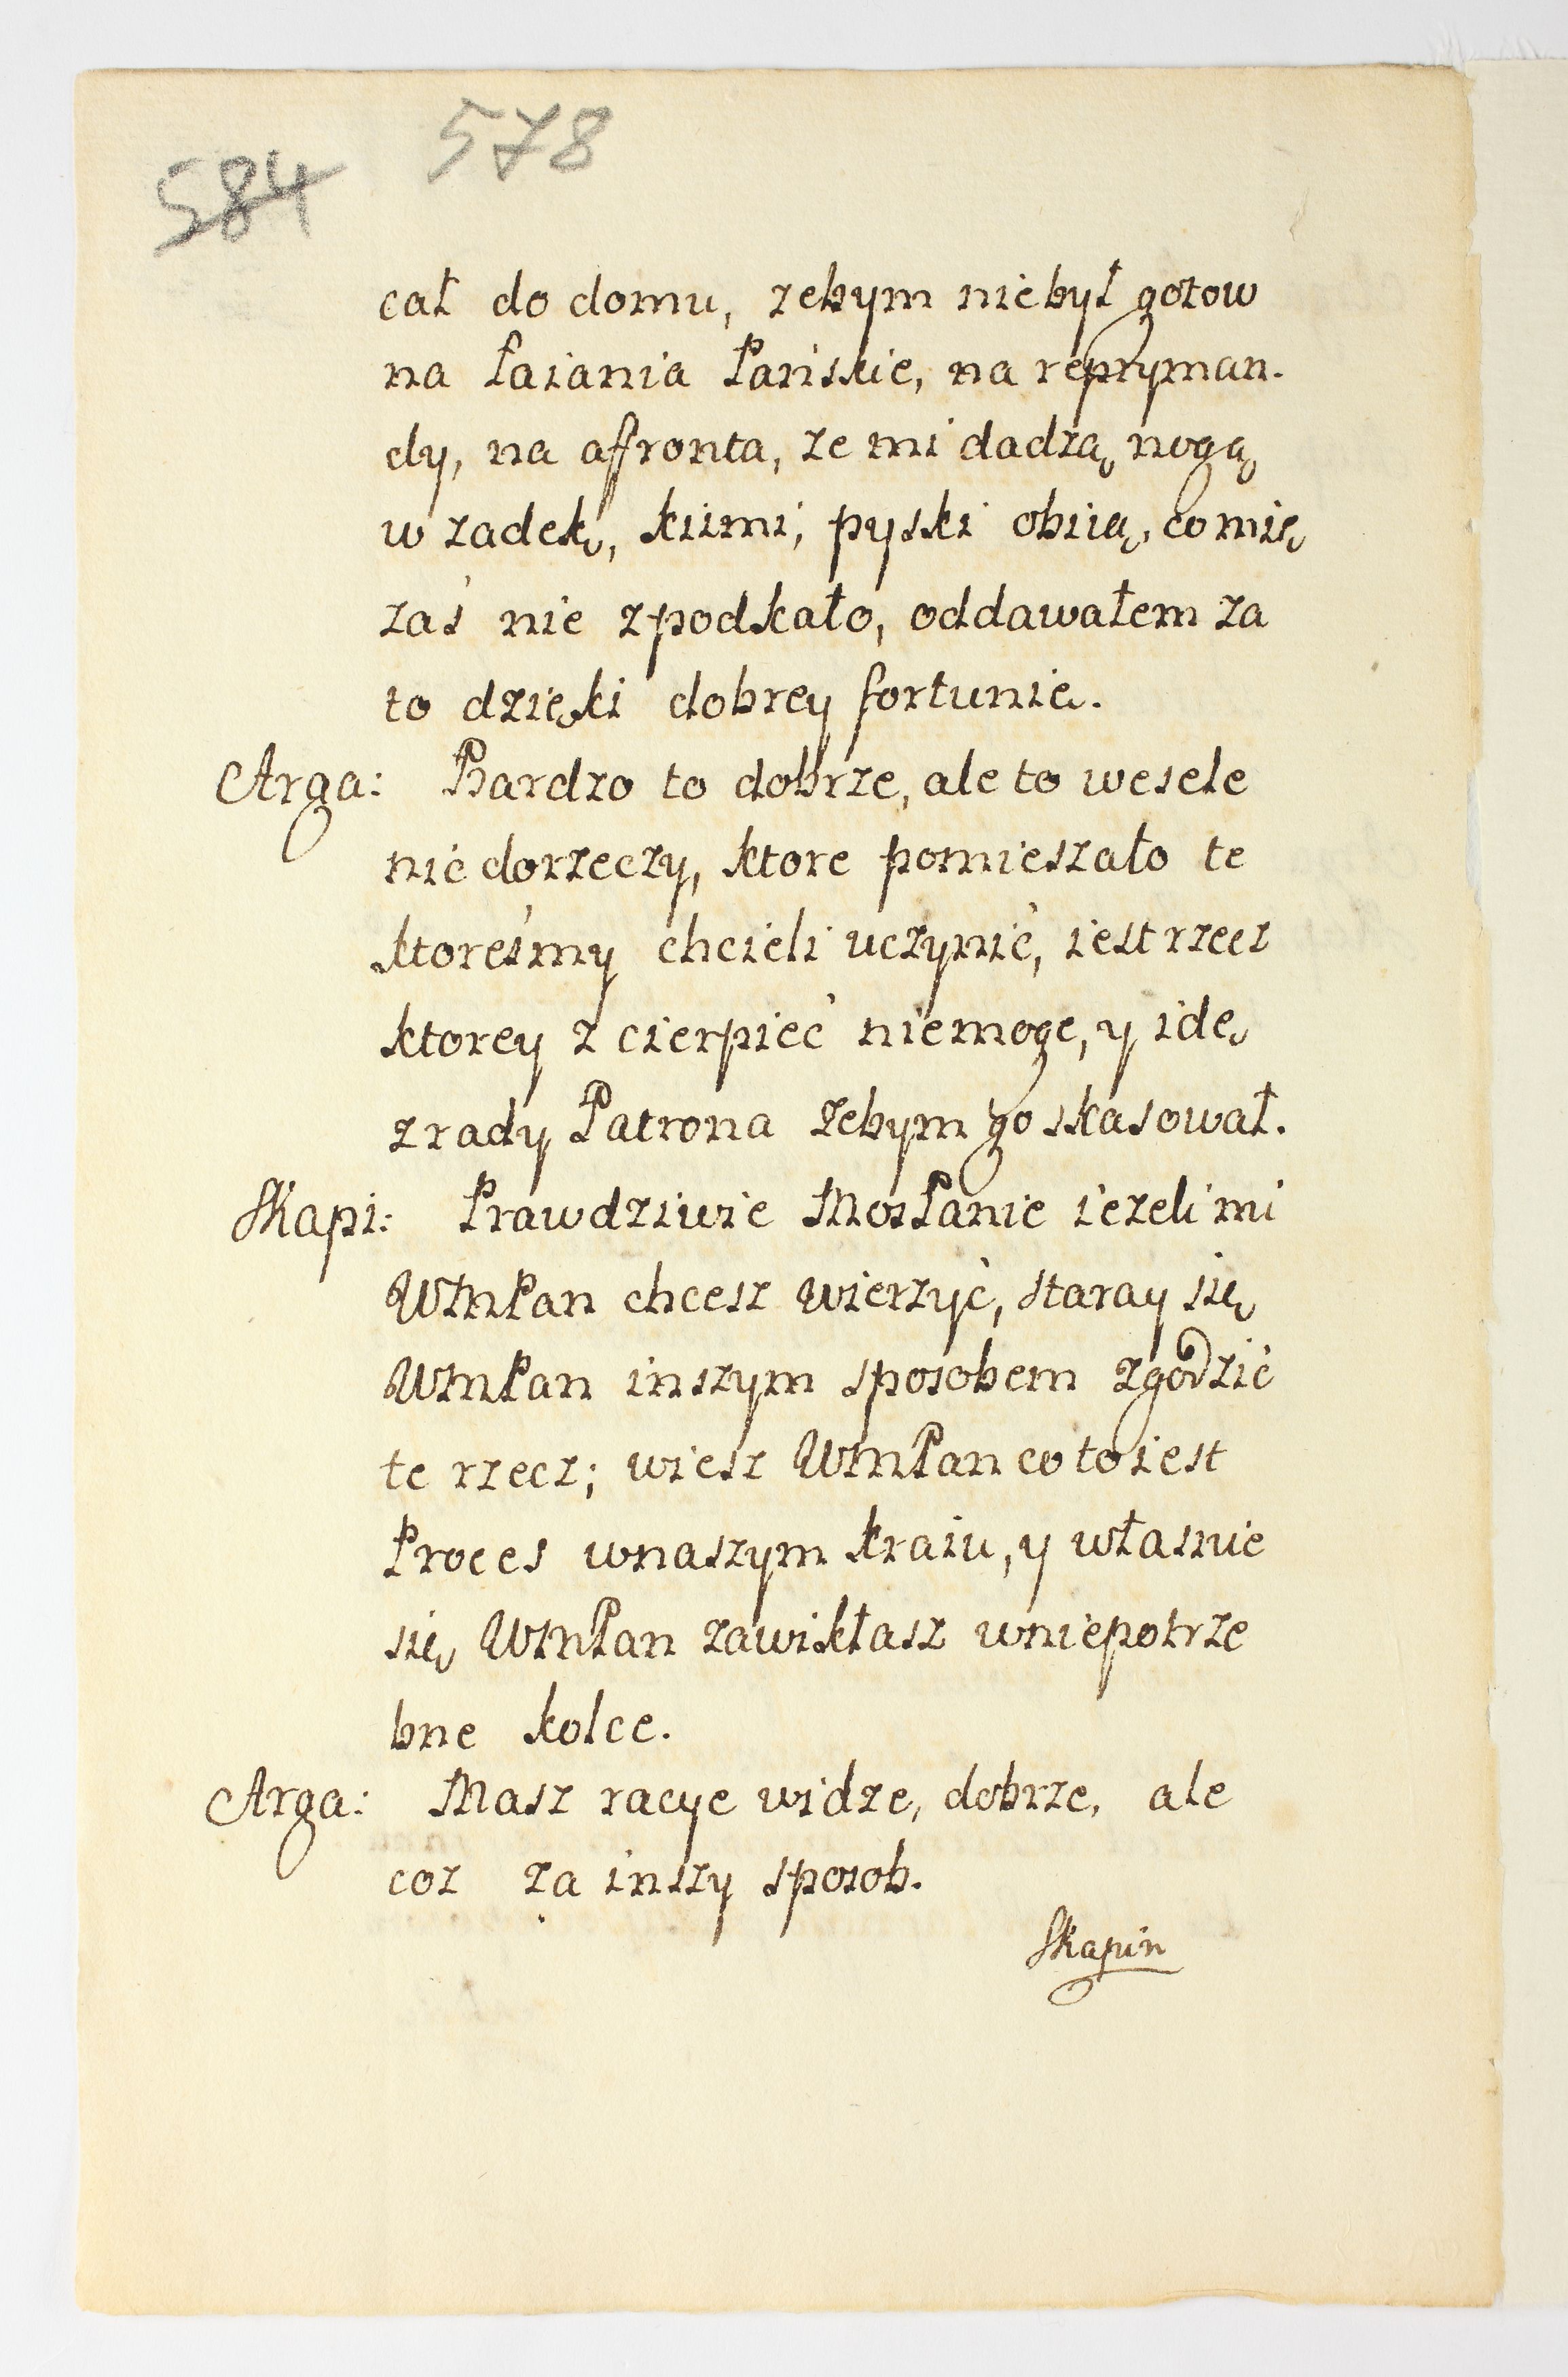 578
584
cał do domu, zebym niebył gotow
na Łaiania Pańskie, na repryman-
dy, na affronta, ze mi dadzą nogą
w zadek, kiimi, pyski obiią, co mię
zaś nie zpodkało, oddawałem za
to dzięki dobrey fortunie.
Arga: Bardzo to dobrze, ale to wesele
nie dorzeczy, ktore pomieszało te
ktoreśmy chcieli uczynić, iest rzecz
ktorey z cierpieć niemoge, y idę
z rady Patrona żebym go skasował.
Skapi: Prawdziwie MosPanie ieżeli mi
WMPan chcesz wierzyć, staray się
WMPan inszym sposobem zgodzić
te rzecz; wiesz WMPan co to iest
Proces wnaszym kraiu, y własnie
się WMPan zawikłasz wniepotrze
bne kolce.
Arga: Masz racye widze, dobrze, ale
coz za inszy sposob.
Skapin